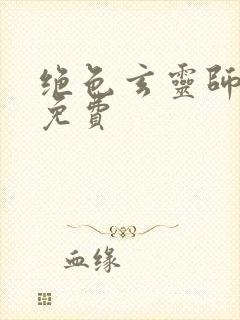 绝色玄靈師
免費
血缘